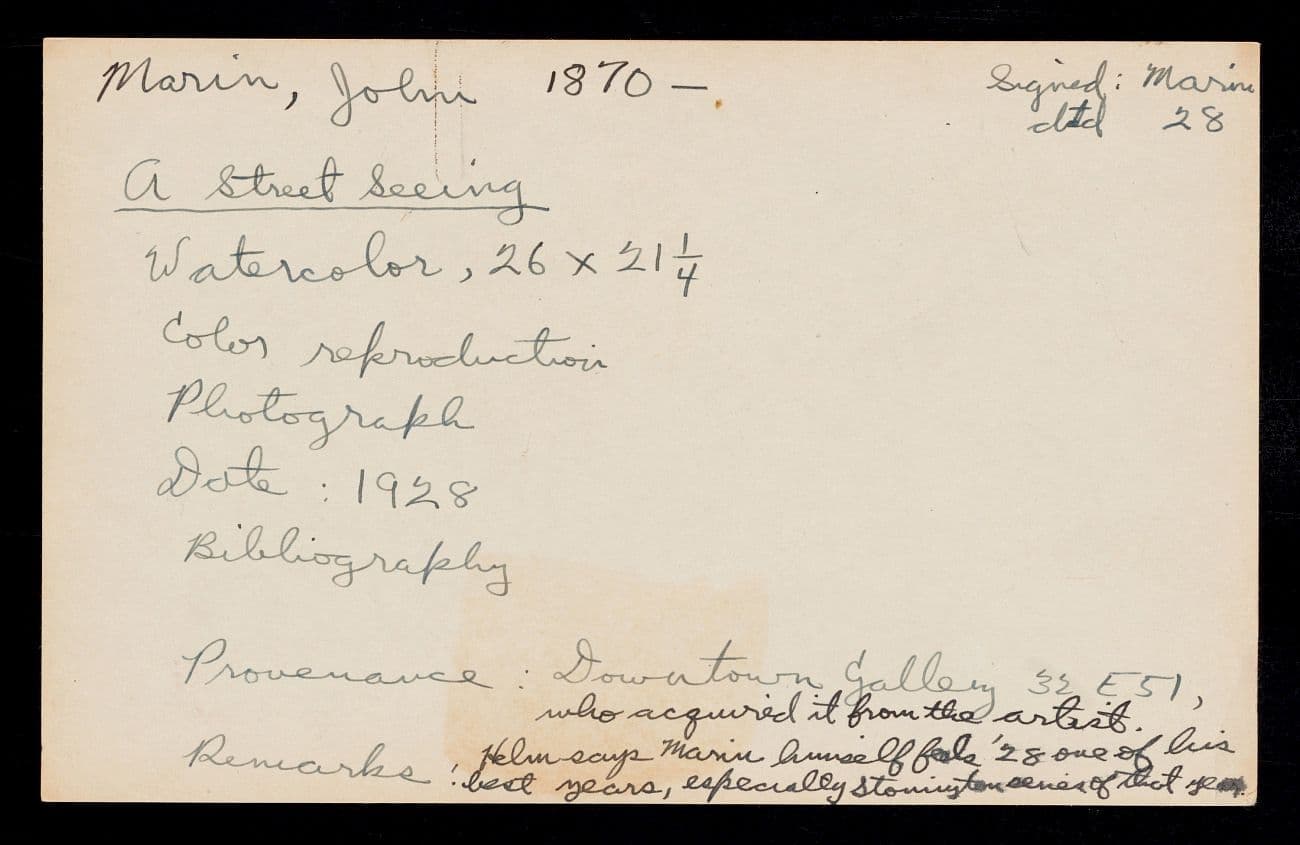 Marin, John 1870 –
Signed: Marin
dtd 28
A Street Seeing
Watercolor, 26 x 21 1/4
Color reproduction
Photograph
Date : 1928
Bibliography
Provenance : Downtown Gallery 32 E 51,
who acquired it from the artist.
Remarks : Helm says Marin himself feels '28 one of his
best years, especially Stonington series of that year.